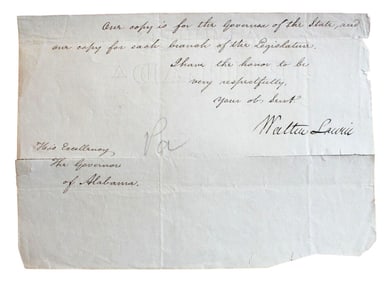 One copy is for the Governor of the State, and
one copy for each branch of the Legislature.
I have the honor to be
very respectfully,
Your ob. Servt
Walter Lowrie
His Excellency,
The Governor
of Alabama.